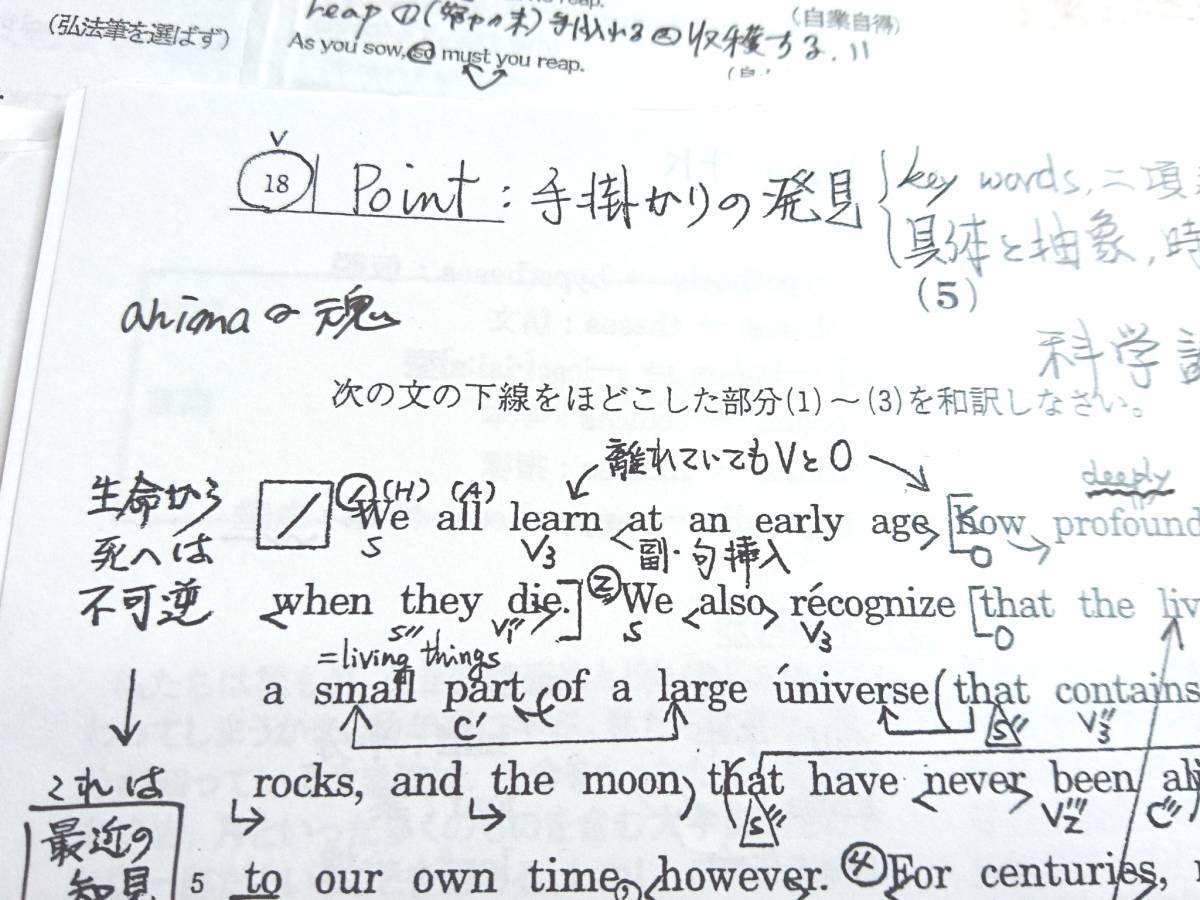 (弘法筆を選ばず)
reap ①(鎌や 手入れる ②収穫する. 11
(自業自得)
As you sow, so must you reap.
18 Point : 手掛かりの発見
key words, 二項
具体と抽象, 時
(5)
animaの魂
科学
次の文の下線をほどこした部分(1)～(3)を和訳しなさい。
離れていてもVとO
生命から
死へは
不可逆
deeply
① (H) (A)
We all learn at an early age how profound
S V3 副・句挿入 O
when they die. ② We also récognize that the liv
S" V1" S V3 O
=living things
a small part of a large úniverse (that contains
C' S" V3"
rocks, and the moon) that have never been al
S''' V2''' C'''
これは
最近の
知見
5 to our own time, however. ④ For centuries,